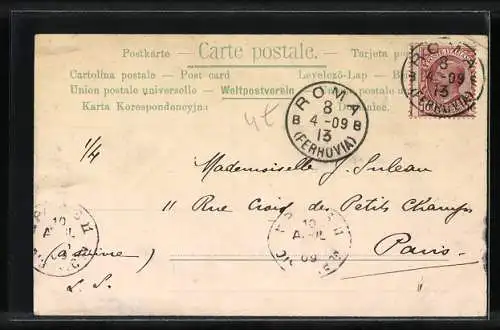 Postkarte — Carte postale. — Tarjeta po
Cartolina postale — Post card Levelező-Lap — B
Union postale universelle — Weltpostverein
Karta Korespondencyjna
ROMA
8
4 -09
B B
13
(FERROVIA)
ROMA
8
4 -09
B
13
(FERROVIA)
1/4
Mademoiselle J. Suleau
11 Rue Croix des Petits Champs
Paris
(à suivre)
L. S.
10
09